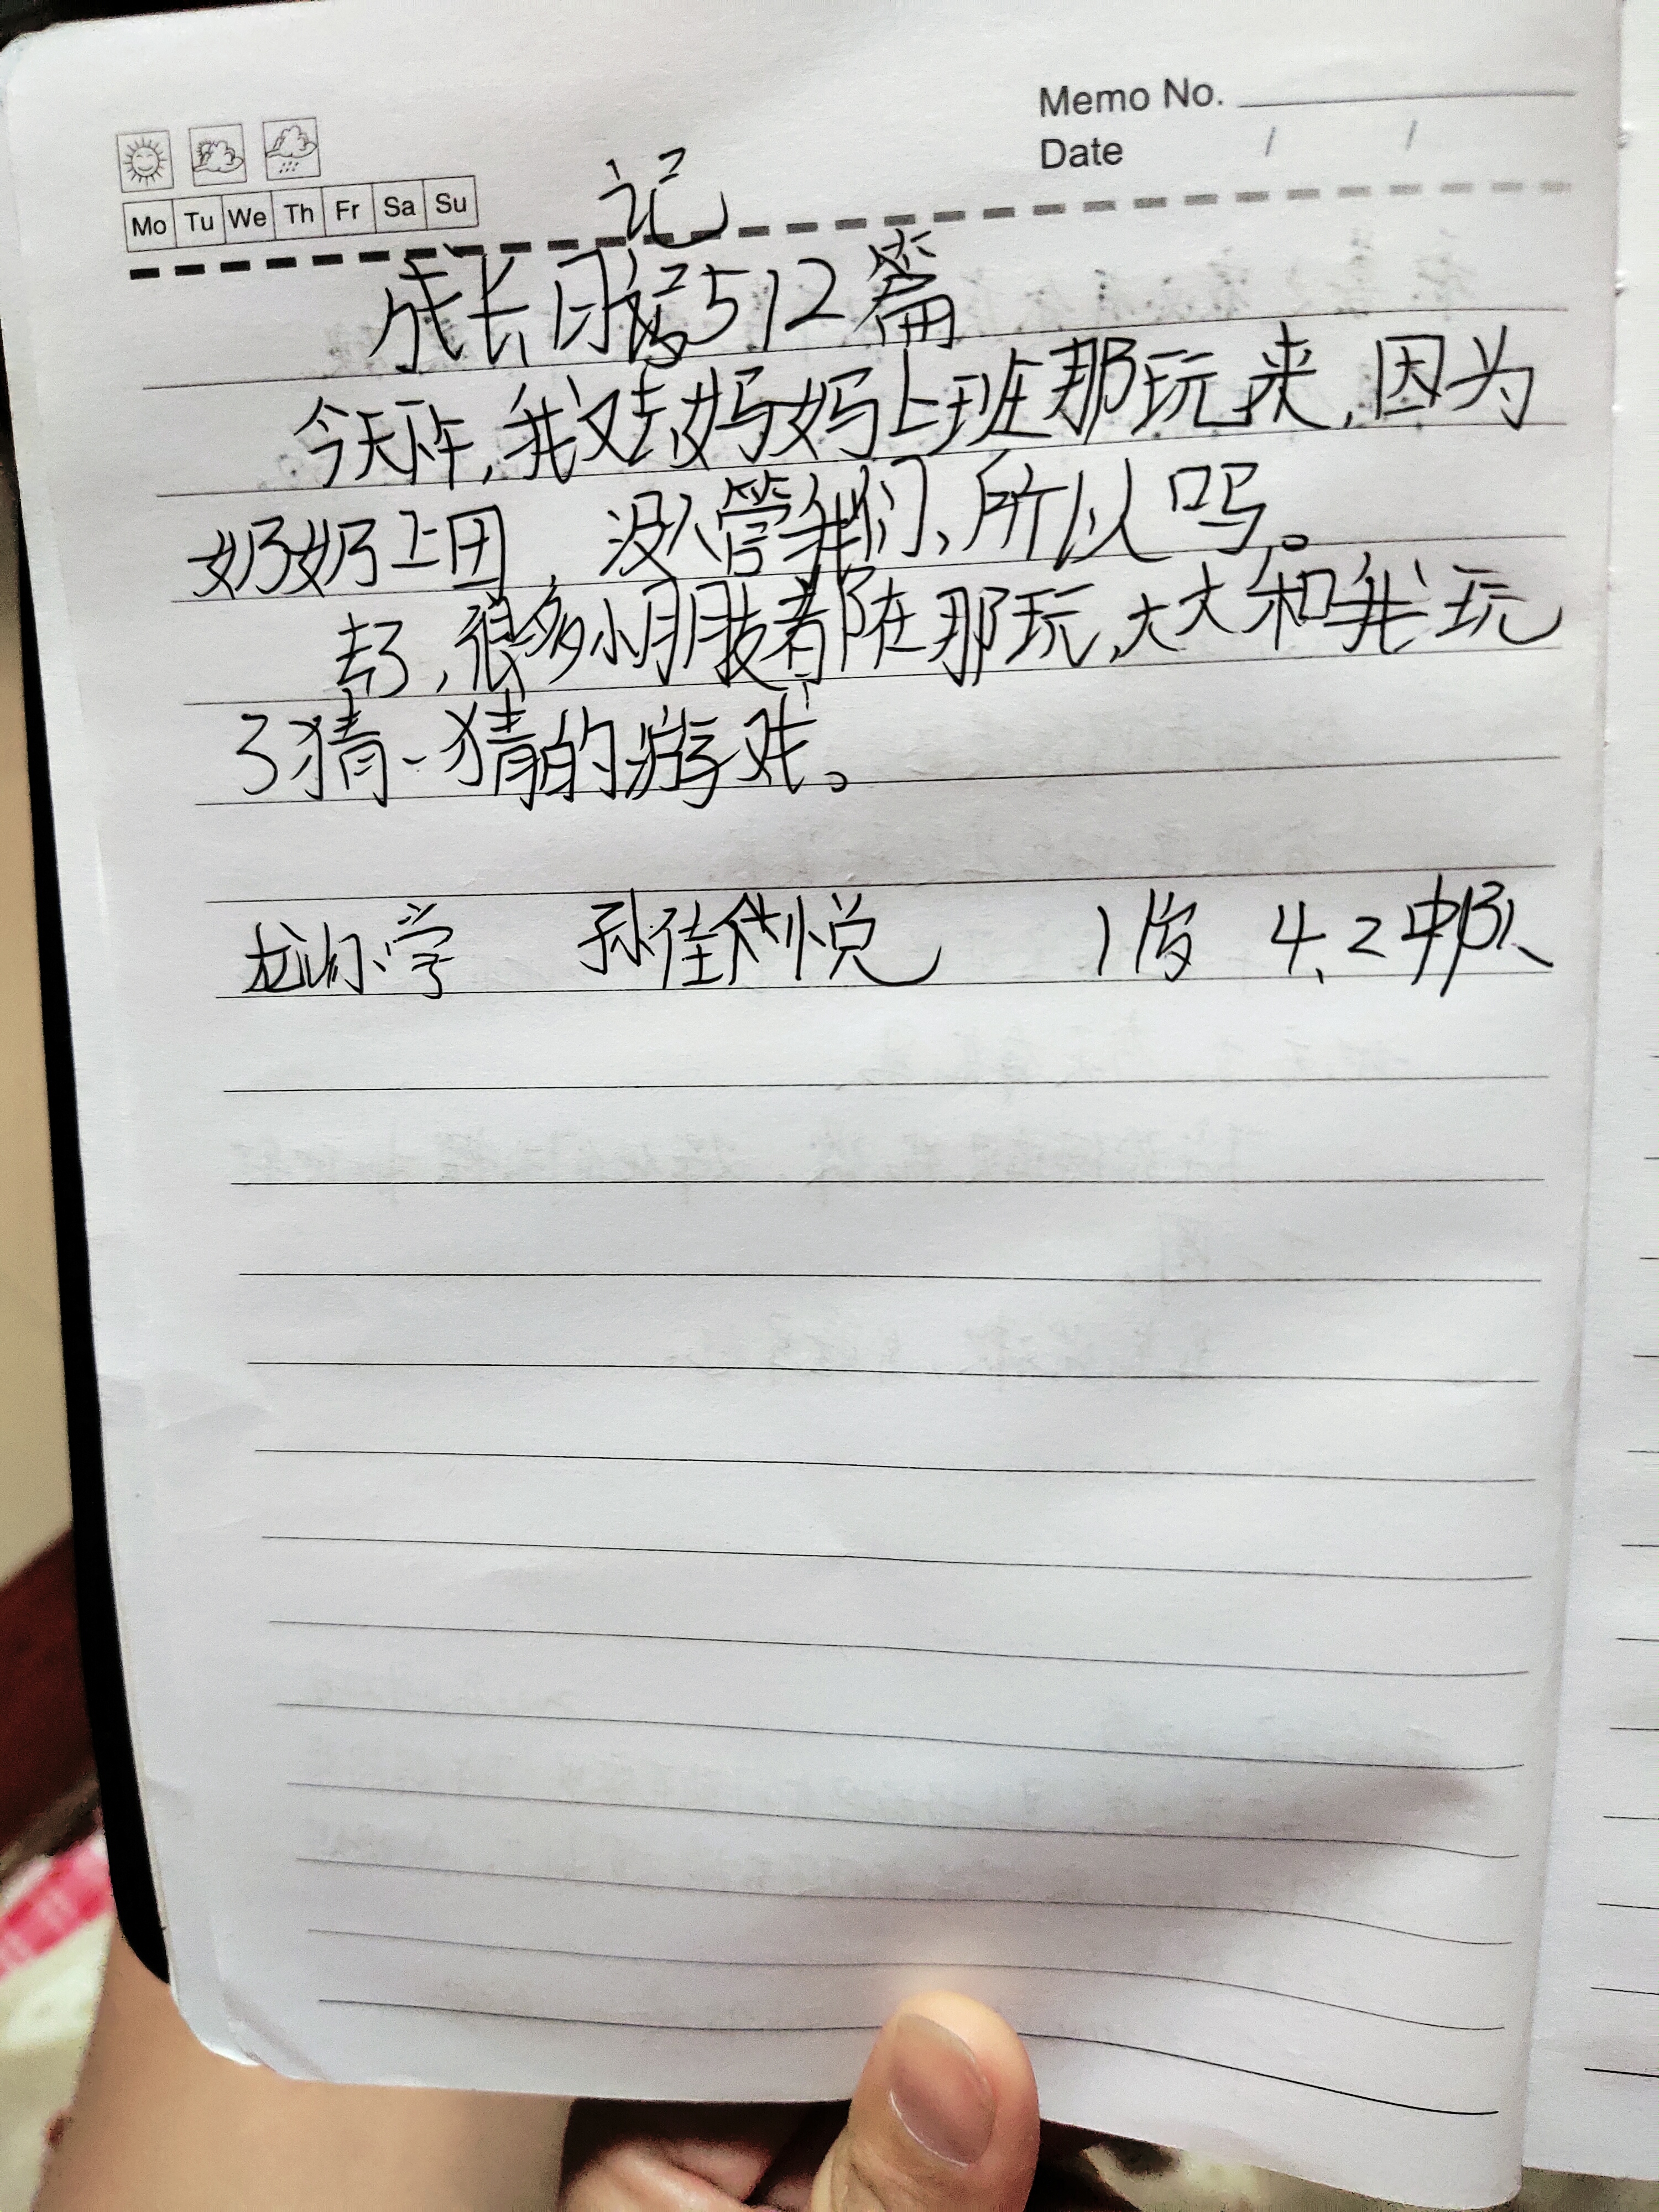 Memo No.
Date / /
Mo Tu We Th Fr Sa Su
记
成长日512篇
今天下午,我又去妈妈上班那玩来,因为
奶奶上田,没人管我们、所以吗。
去了,很多小朋友者都在那玩,大大和我玩
了猜一猜的游戏。
小学 孙佳悦 1岁 4、2中队